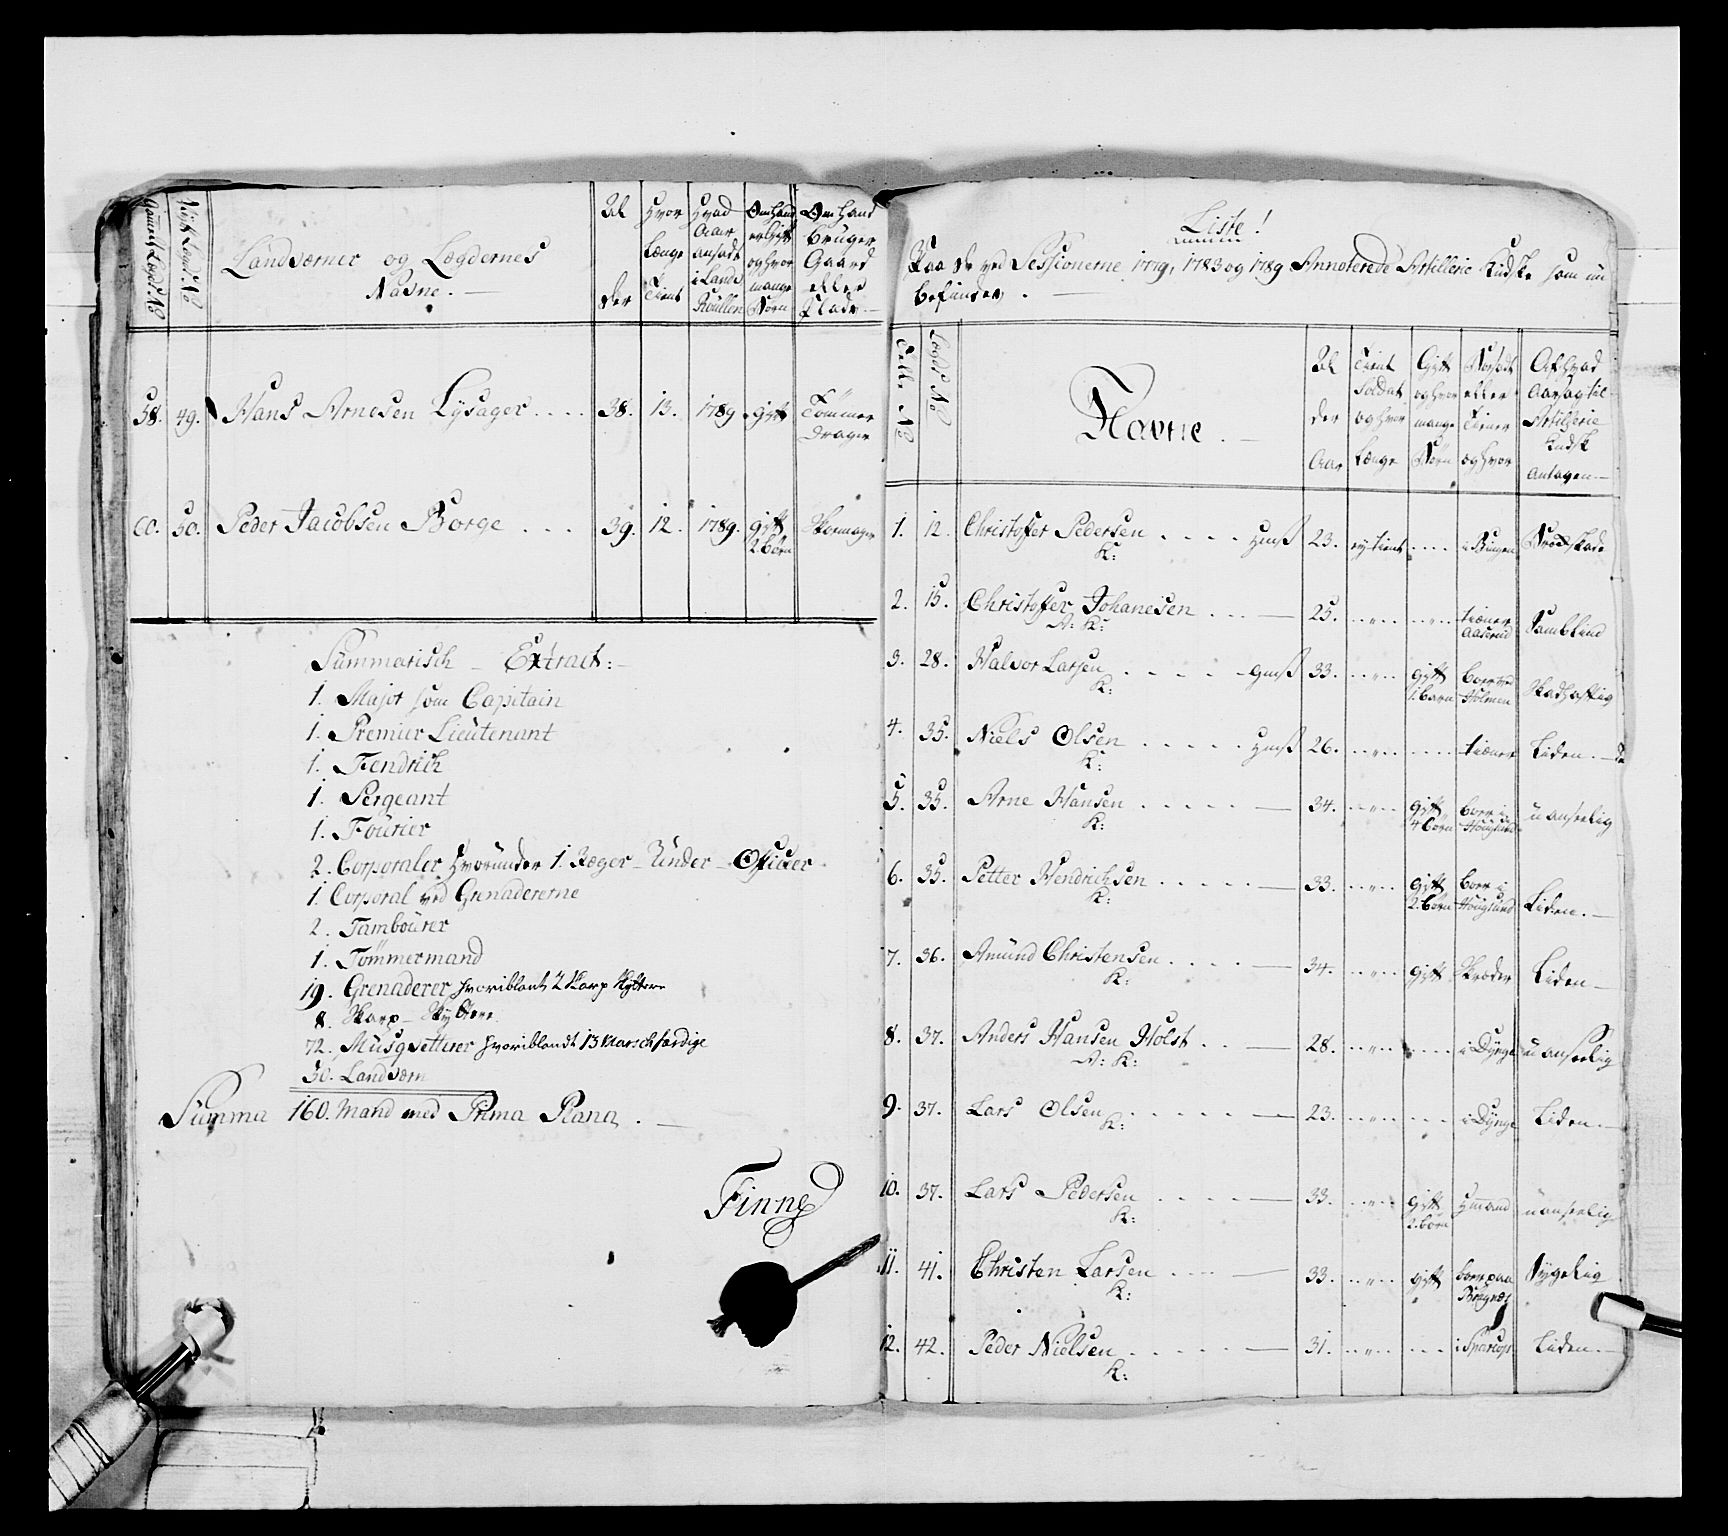 Gammel Lægds No
Nye Lægds No
Landværner og Lægdernes
Navne.
Al
der
Hvor
længe
tient
Hvad
Aar
ansadt
i Land
Roullen
Om Hand
er gift
og hvor
mange
Børn
Om Hand
bruger
Gaard
eller
Plads
58. 49. Hans Arnesen Lysager.... 38. 13. 1789 gift Tømmer
Drager
60. 50. Peder Jacobsen Borge ... 39. 12. 1789. gift
2 børn Skomager
Summarisch Extract:
1. Major som Capitain
1. Premier Lieutenant
1. Fendrich
1. Sergeant
1. Fourier
2. Corporaler hvorunder 1. Jæger-Under-Officeer
1. Corporal ved Grenadererne
2. Tambourer
1. Tømmermand
19. Grenaderer hvoriblant 2 Skarp Skyttere
8. Skarp-Skyttere
72. Musqvetterer hvoriblandt 13 Marschfærdige
50. Landværn
Summa 160. Mand med Prima Plana.
Finne
Liste!
Paa de ved Sessionerne 1779, 1783 og 1789 Annoterede Artillerie Kudske som nu
befindes.
Lægds No
Navne.
Al
der
Aar
Tient
Soldat
og hvor
længe
Gift
og hvor
mange
Børn
Bosadt
eller
tiener
og hvor
Af hvad
Aarsag til
Artillerie
Kudsk
antagen
1. 12. Christoffer Pedersen .... 23. ey tient .... i Bingen Brodskade
K:
2. 15. Christoffer Johanesen ... 25. tiæner
Aaserud Tambliind
A: K:
3. 28. Halvor Larsen 33. gift
1. barn boer ved
Holmen Skadhaftig
K:
4. 35. Niels Olsen ..... 26. tiæner Liden.
K:
5. 35. Arne Hansen ..... 34. gift
4 børn boer i
Houglund uanseelig
K:
6. 35. Petter Hendrichsen ..... 33. gift
2. børn boer i
Houglund Liden.
K:
7. 36. Amund Christensen .... 34. gift Skræder Liden
K:
8. 37. Anders Hansen Holst .. 28. i Dynge uanseelig
A: K:
9. 37. Lars Olsen ..... 23. i Dynge Liden.
K:
10. 37. Lars Pedersen .... 33. gift
2. børn Huusmand uanseelig
K:
11. 41. Christen Larsen ... 33. gift boer paa
Bragnæs Sygelig
K:
12. 42. Peder Nielsen ..... 31. Liden.
K: